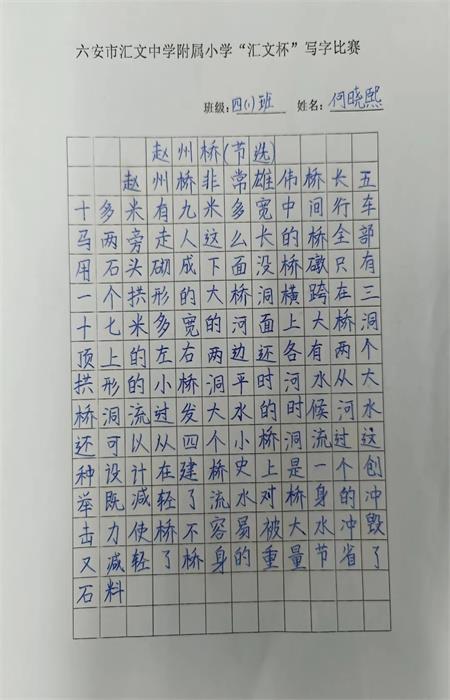 六安市汇文中学附属小学“汇文杯”写字比赛
班级：四(1)班 姓名：何晓熙
赵州桥(节选)
赵州桥非常雄伟桥长五
十多米有九米多宽中间行车
马两旁走人这么长的桥全部
用石头砌成下面没桥礅只有
一个拱形的大桥洞横跨在三
十七米多宽的河面上大桥洞
顶上的左右两边还各有两个
拱形的小桥洞平时河水从大
桥洞流过发大水的时候河水
还可以从四个小桥洞流过这
种设计在建桥史上是一个创
举既减轻了流水对桥身的冲
击力使桥不容易被大水冲毁
又减轻了桥身的重量节省了
石料